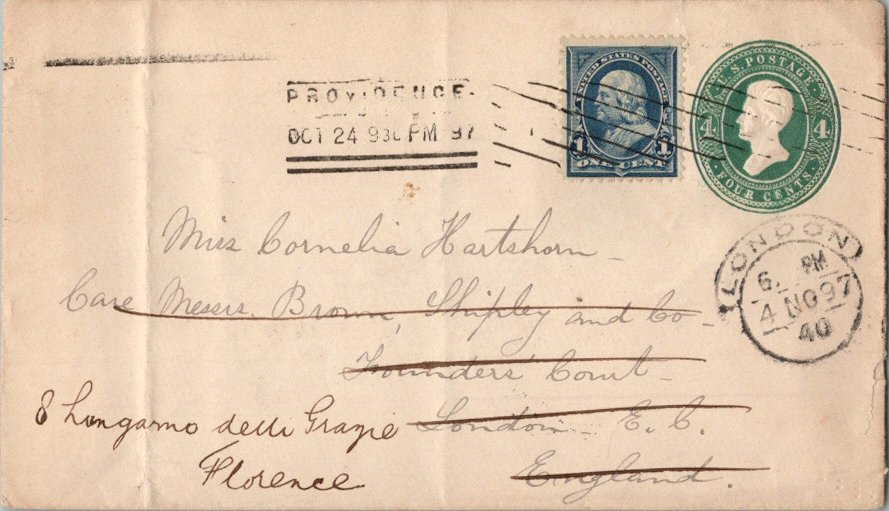 PROVIDENCE.
OCT 24 930 PM 97
UNITED STATES POSTAGE
1 1
ONE CENT
U.S. POSTAGE
4 4
FOUR CENTS.
LONDON
6. PM
4 NO 97
40
Miss Cornelia Hartshorn
Care Messrs. Brown, Shipley and Co
Founders' Court
London. E. C.
England.
8 Lungarno delle Grazie
Florence